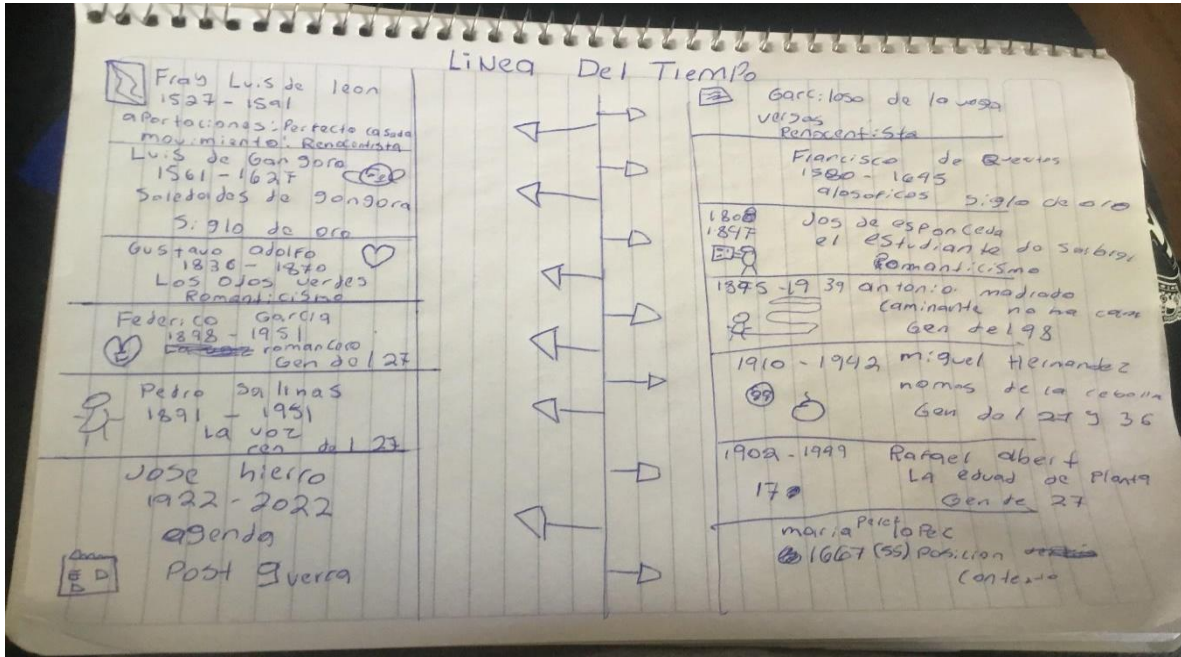 Linea Del Tiempo
Fray Luis de leon
1527 - 1591
aportaciones: Perfecto casada
movimiento: Renacentista
Luis de Gangora
1561 - 1627
Soledades de gongora
Siglo de oro
Gustavo adolfo
1836 - 1870
Los Ojos verdes
Romanticismo
Federico Garcia
1898 - 1951
romancero
Gen del 27
Pedro Salinas
1891 - 1951
La voz
del 27
Jose hierro
1922 - 2022
agenda
Post guerra
Garciloso de la vega
versos
Renacentista
Francisco de
1580 - 1645
siglo de oro
1808
1847
Jos de esponceda
el estudiante de
Romanticismo
1875 - 1939 antonio madiado
caminante no ha cam
Gen del 98
1910 - 1942 miguel Hernandez
de la cebolla
Gen del 27 y 36
1902 - 1999 Rafael abert
La de Planta
17
Gen de 27
maria lopec
1667 (55) Posicion